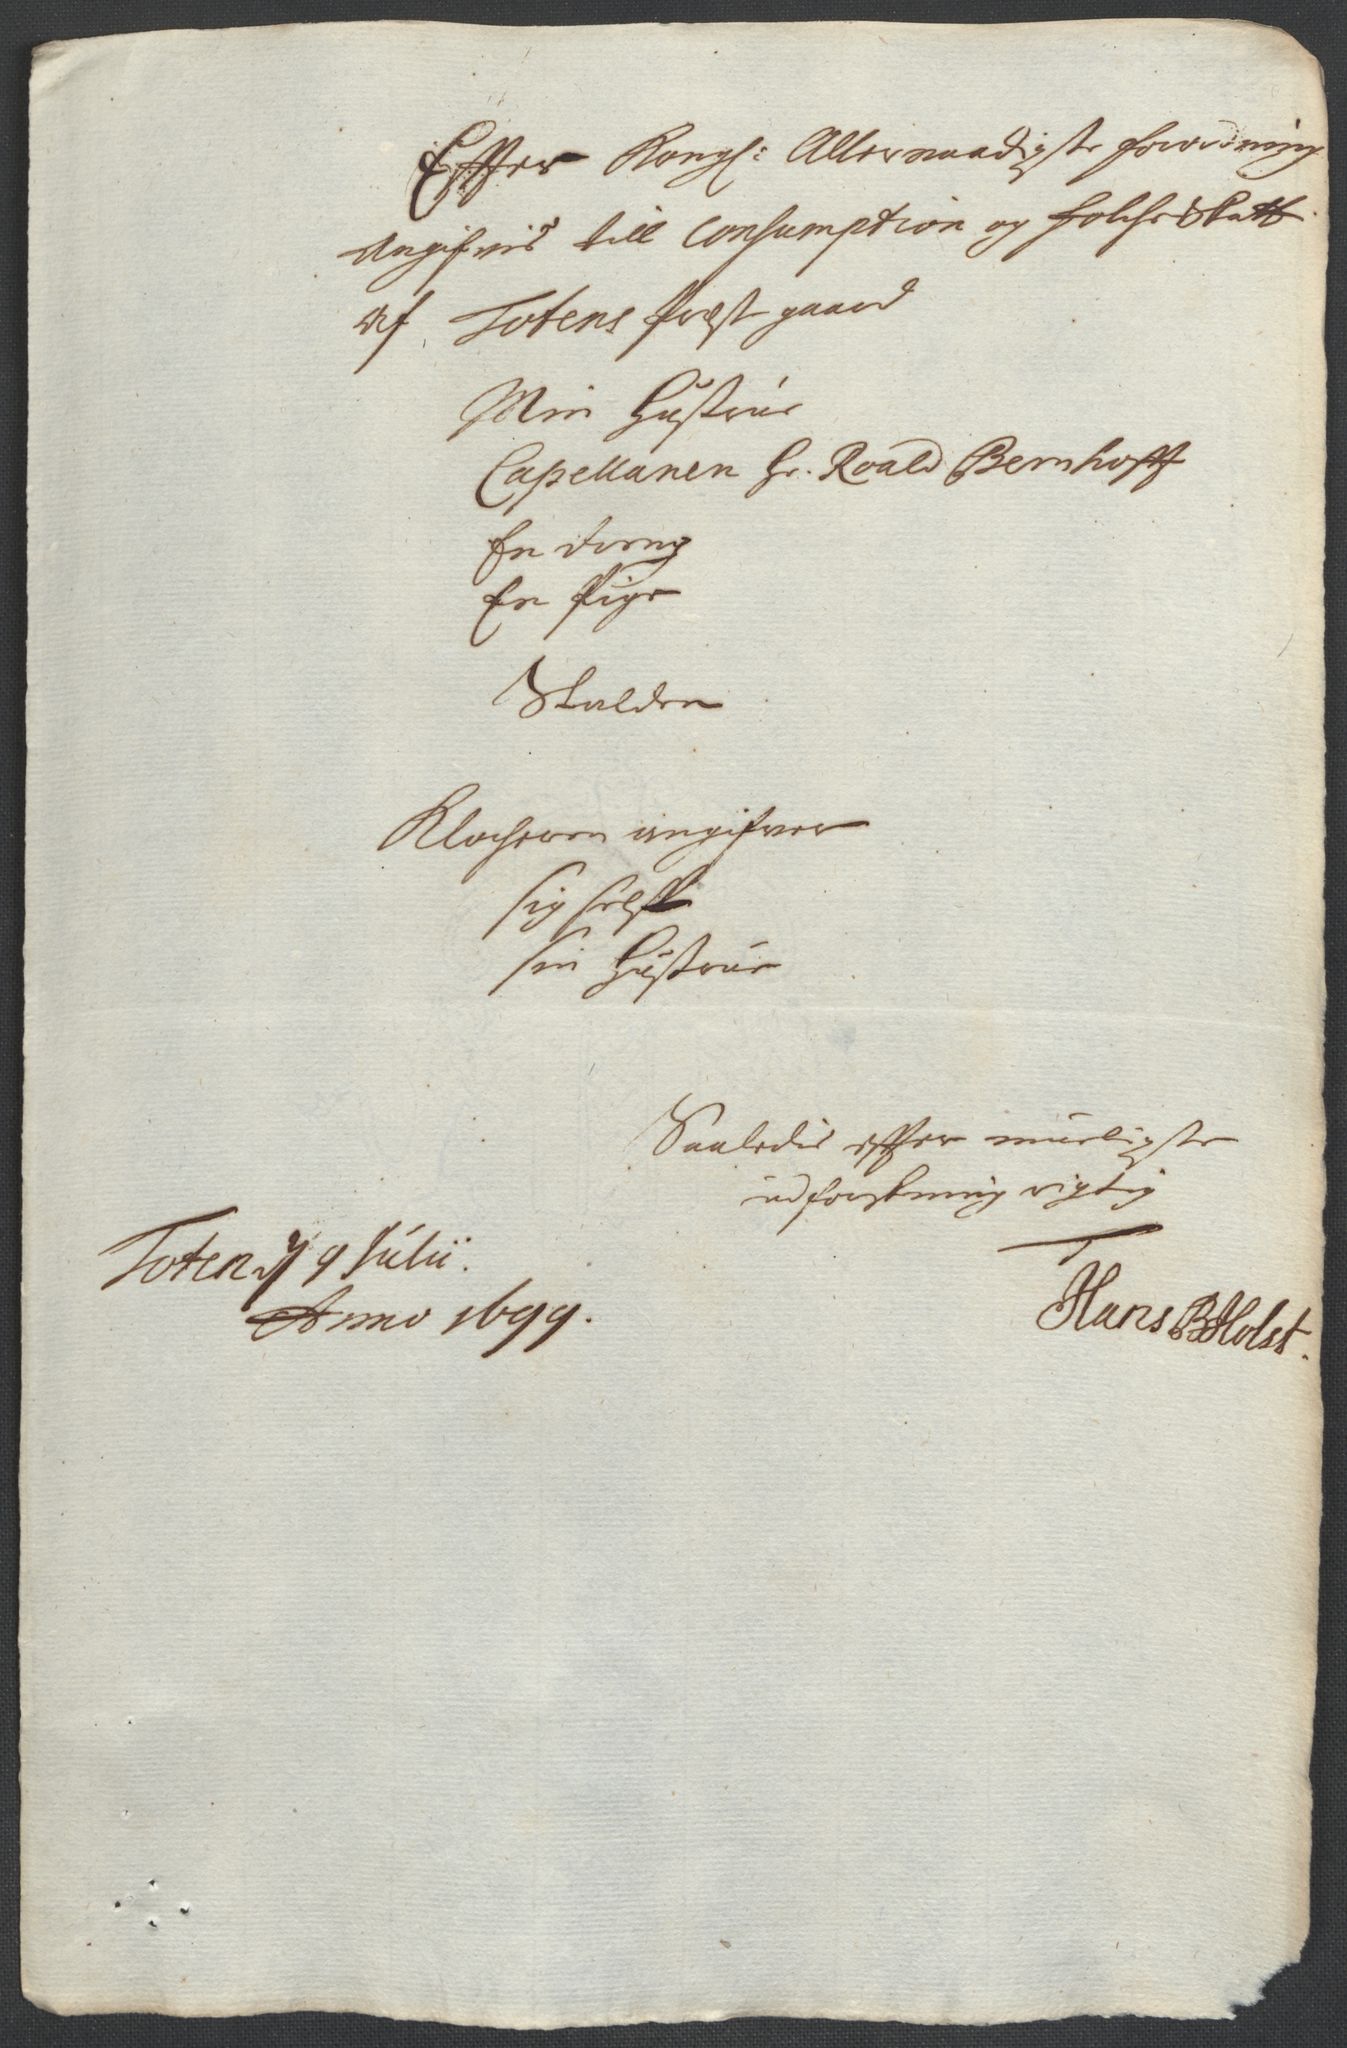 Effter Kongl: Allernaadigste forordning
Angifvis till Consumption og folche Skatt
Af Totens Prest gaard
Min Hustrue
Capellanen Hr. Roald Bernhofft
En dreng
En Pige
Klocheren angifver
sig self
sin Hustrue
Saaledis effter mueligste
udforskning rigtig
Toten d 9 Julii.
Anno 1699.
Hans B Holst.